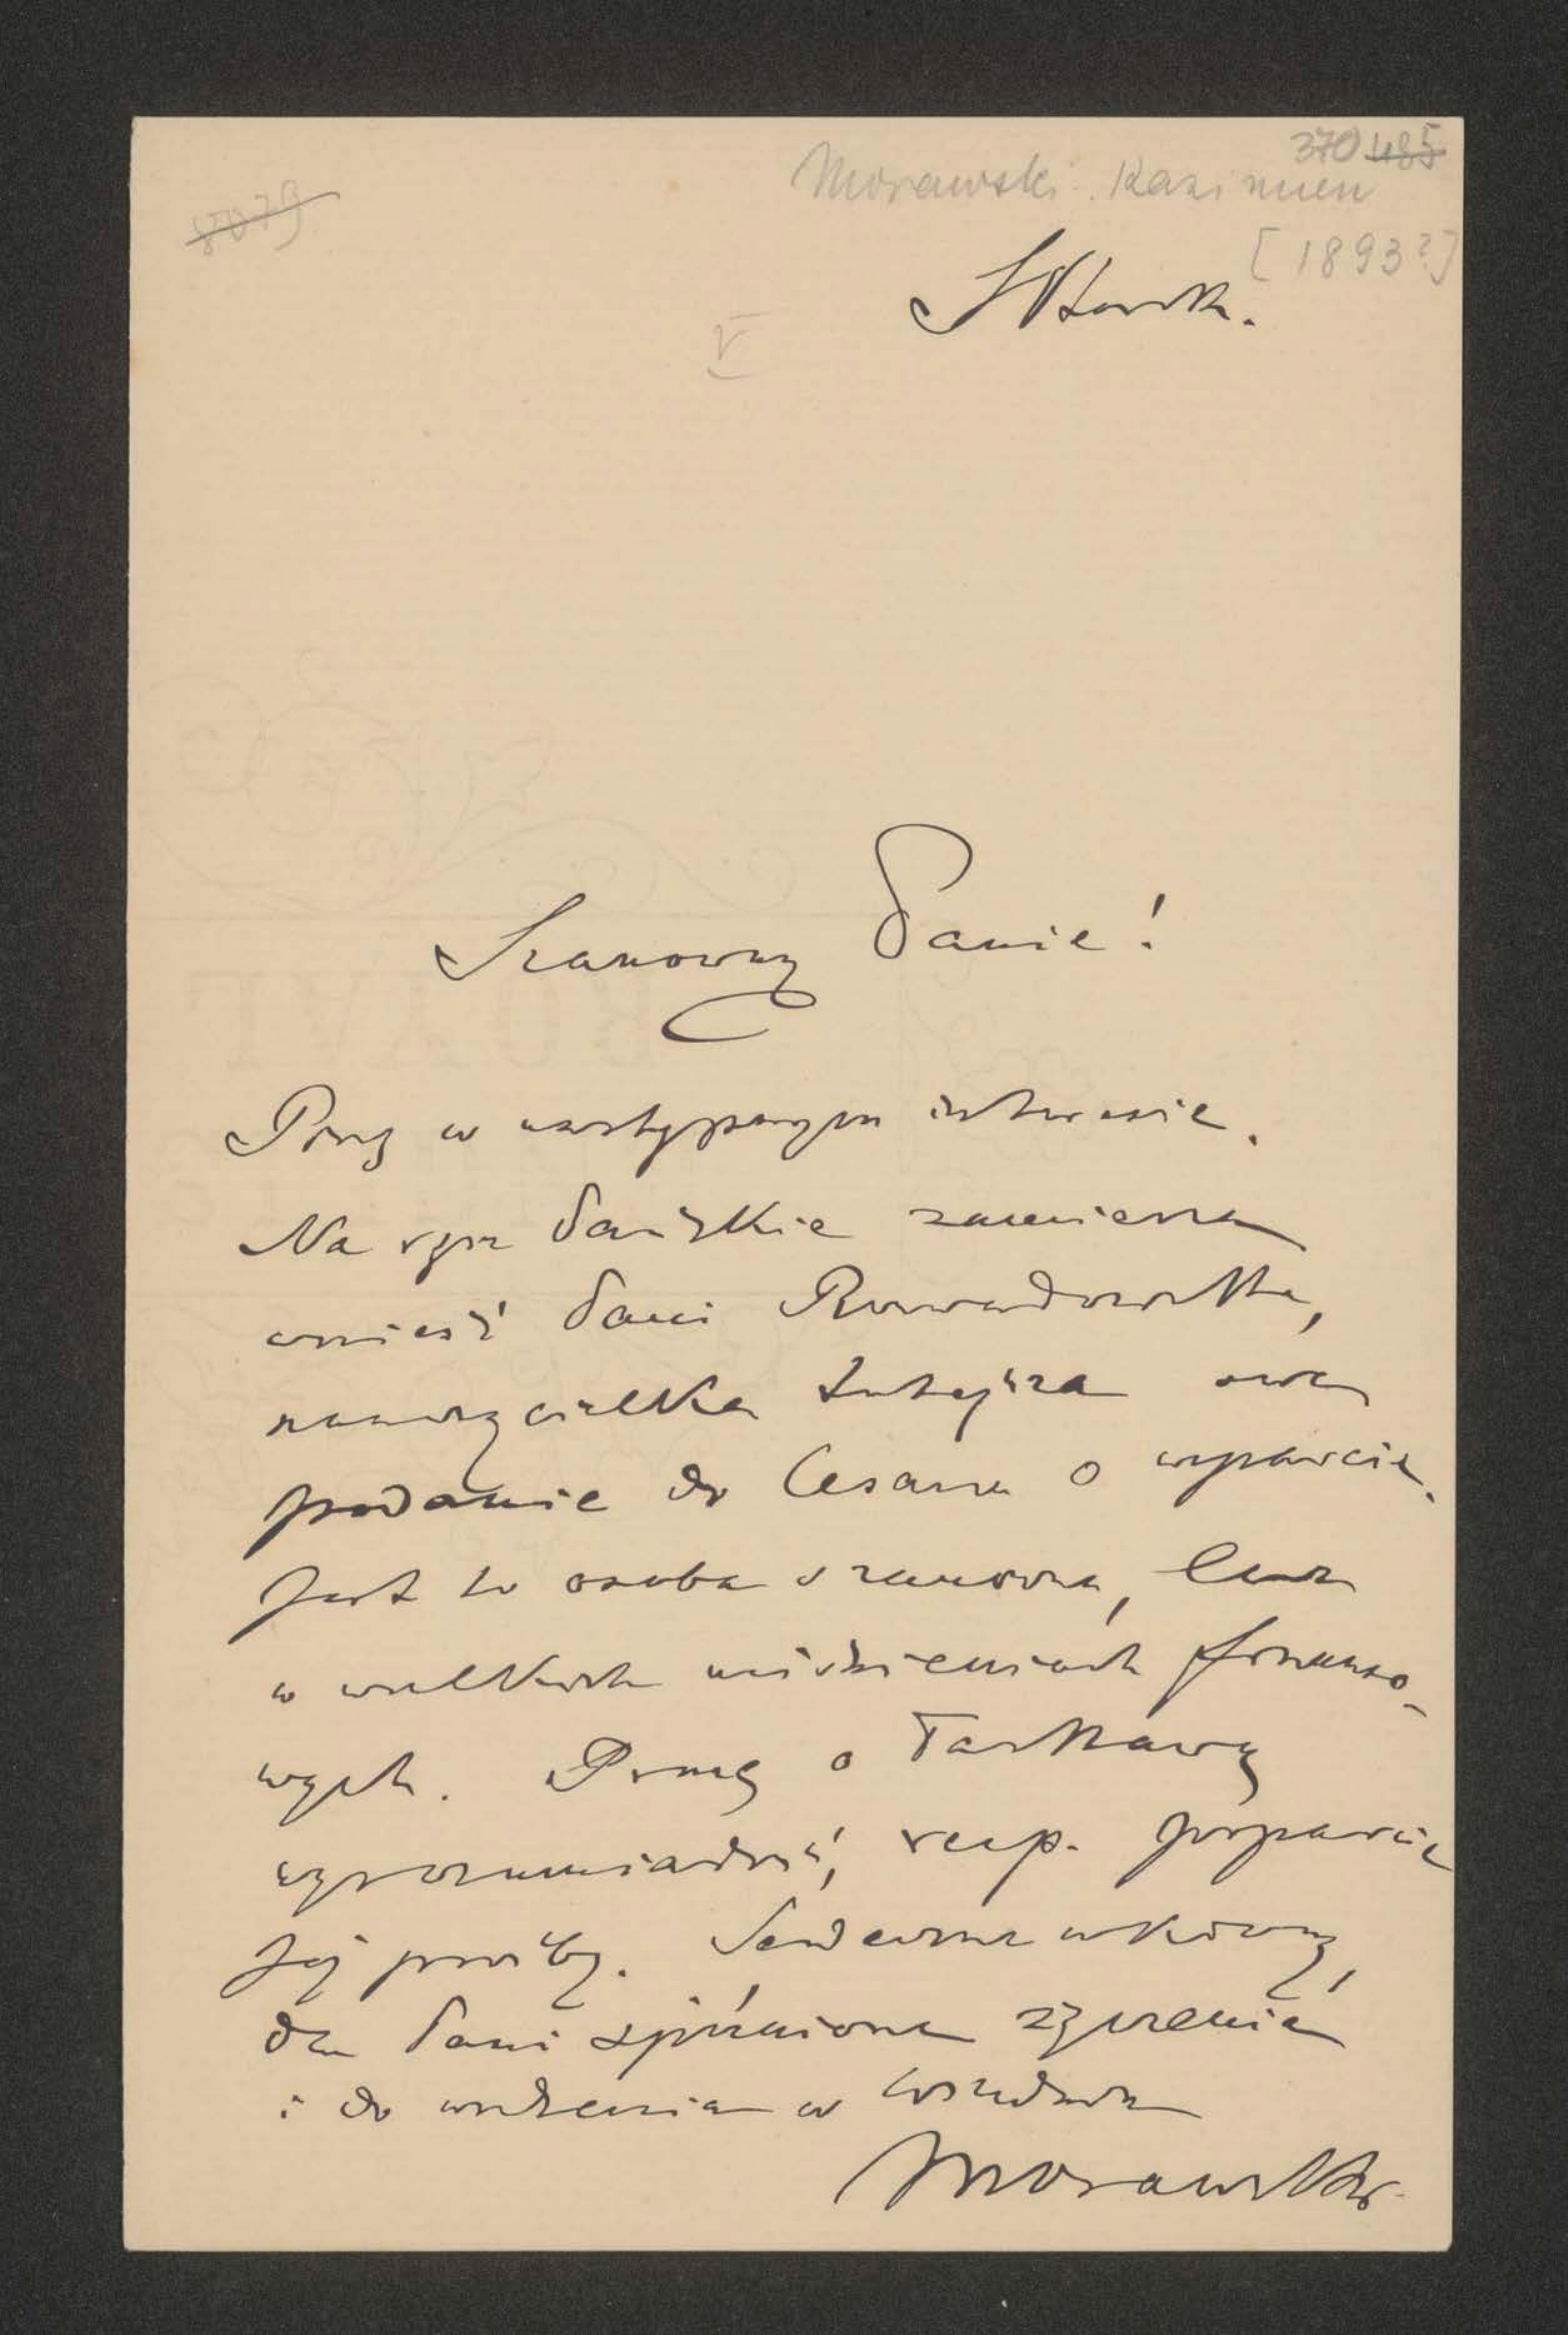 370 485
Morawski Kazimierz
8079
[1893?]
V
Szanowny Panie!
Proszę w następującym interesie.
Na ręce Pańskie zamierza
wnieść Pani Rozwadowska,
nauczycielka tutejsza swe
podanie do Cesarza o wsparcie.
Jest to osoba szanowna, lecz
w wielkich uciśnieniach finanso-
wych. Proszę o łaskawą
wyrozumiałość, resp. poparcie
Jej prośby. Serdeczne ukłony,
dla Pani spóźnione życzenia
i do widzenia w
Morawski